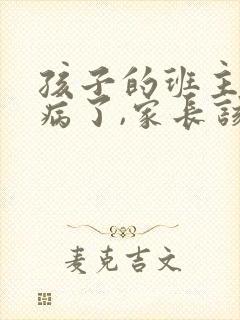 孩子的班主
病了,家長該
麦克吉文